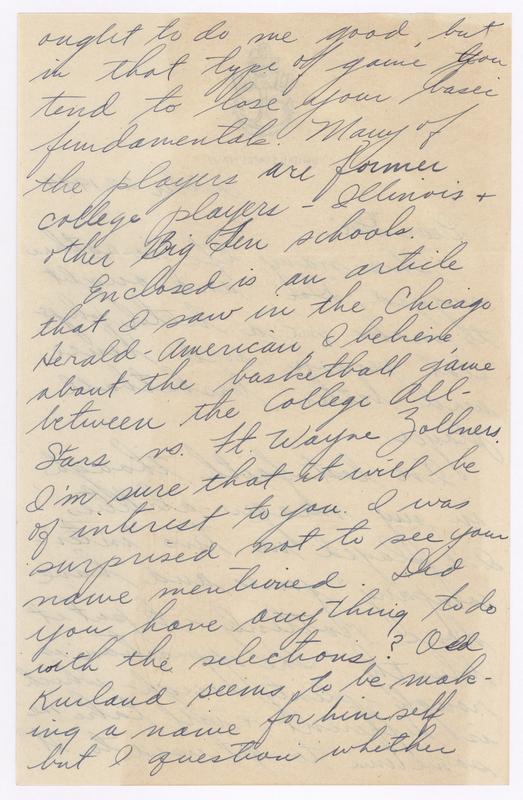 ought to do me good, but
in that type of game you
tend to lose your basic
fundamentals. Many of
the players are former
college players - Illinois +
other Big Ten schools.
Enclosed is an article
that I saw in the Chicago
Herald-American, I believe,
about the basketball game
between the College All-
Stars vs. Ft. Wayne Zollners.
I'm sure that it will be
of interest to you. I was
surprised not to see your
name mentioned. Did
you have anything to do
with the selections?
Kurland seems to be mak-
ing a name for himself
but I question whether